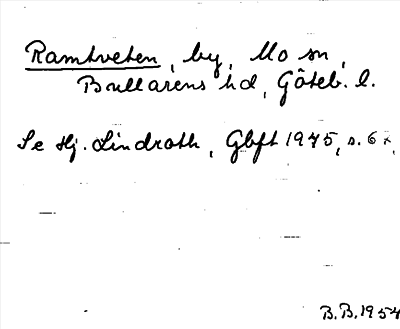 Ramtveten, by, Mo sn,
Bullarens hd, Göteb. l.
Se Hj. Lindroth, Gbft 1945, s. 6 x.
B.B. 1954